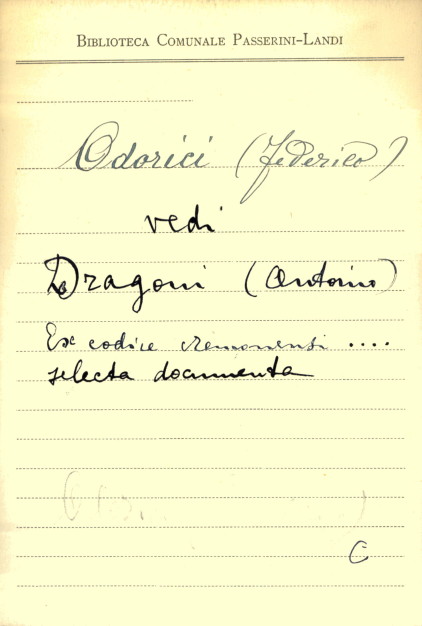 BIBLIOTECA COMUNALE PASSERINI-LANDI
Odorici (Federico)
vedi
Dragoni (Antonino)
Ex codice cremonensi ....
selecta documenta
C